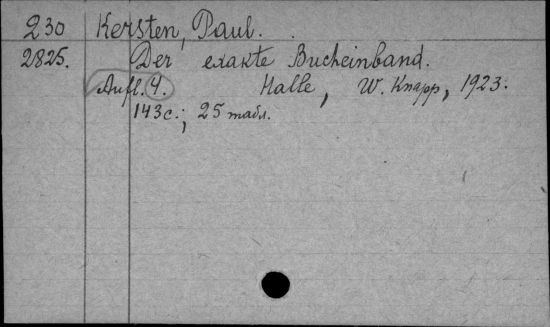 230 Kersten, Paul.
2825. Der exakte Bucheinband.
Aufl. 4. Halle, W. Knapp, 1923.
143 с.; 25 табл.